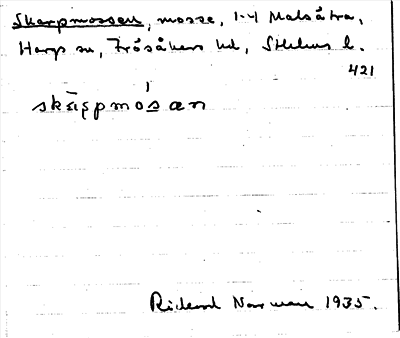 Skarpmossen, mosse, 1-4 Malsåtra,
Harg sn, Frösåkers hd, Sthlms l.
421
skàrpmósæn
Rickard Norman 1935.